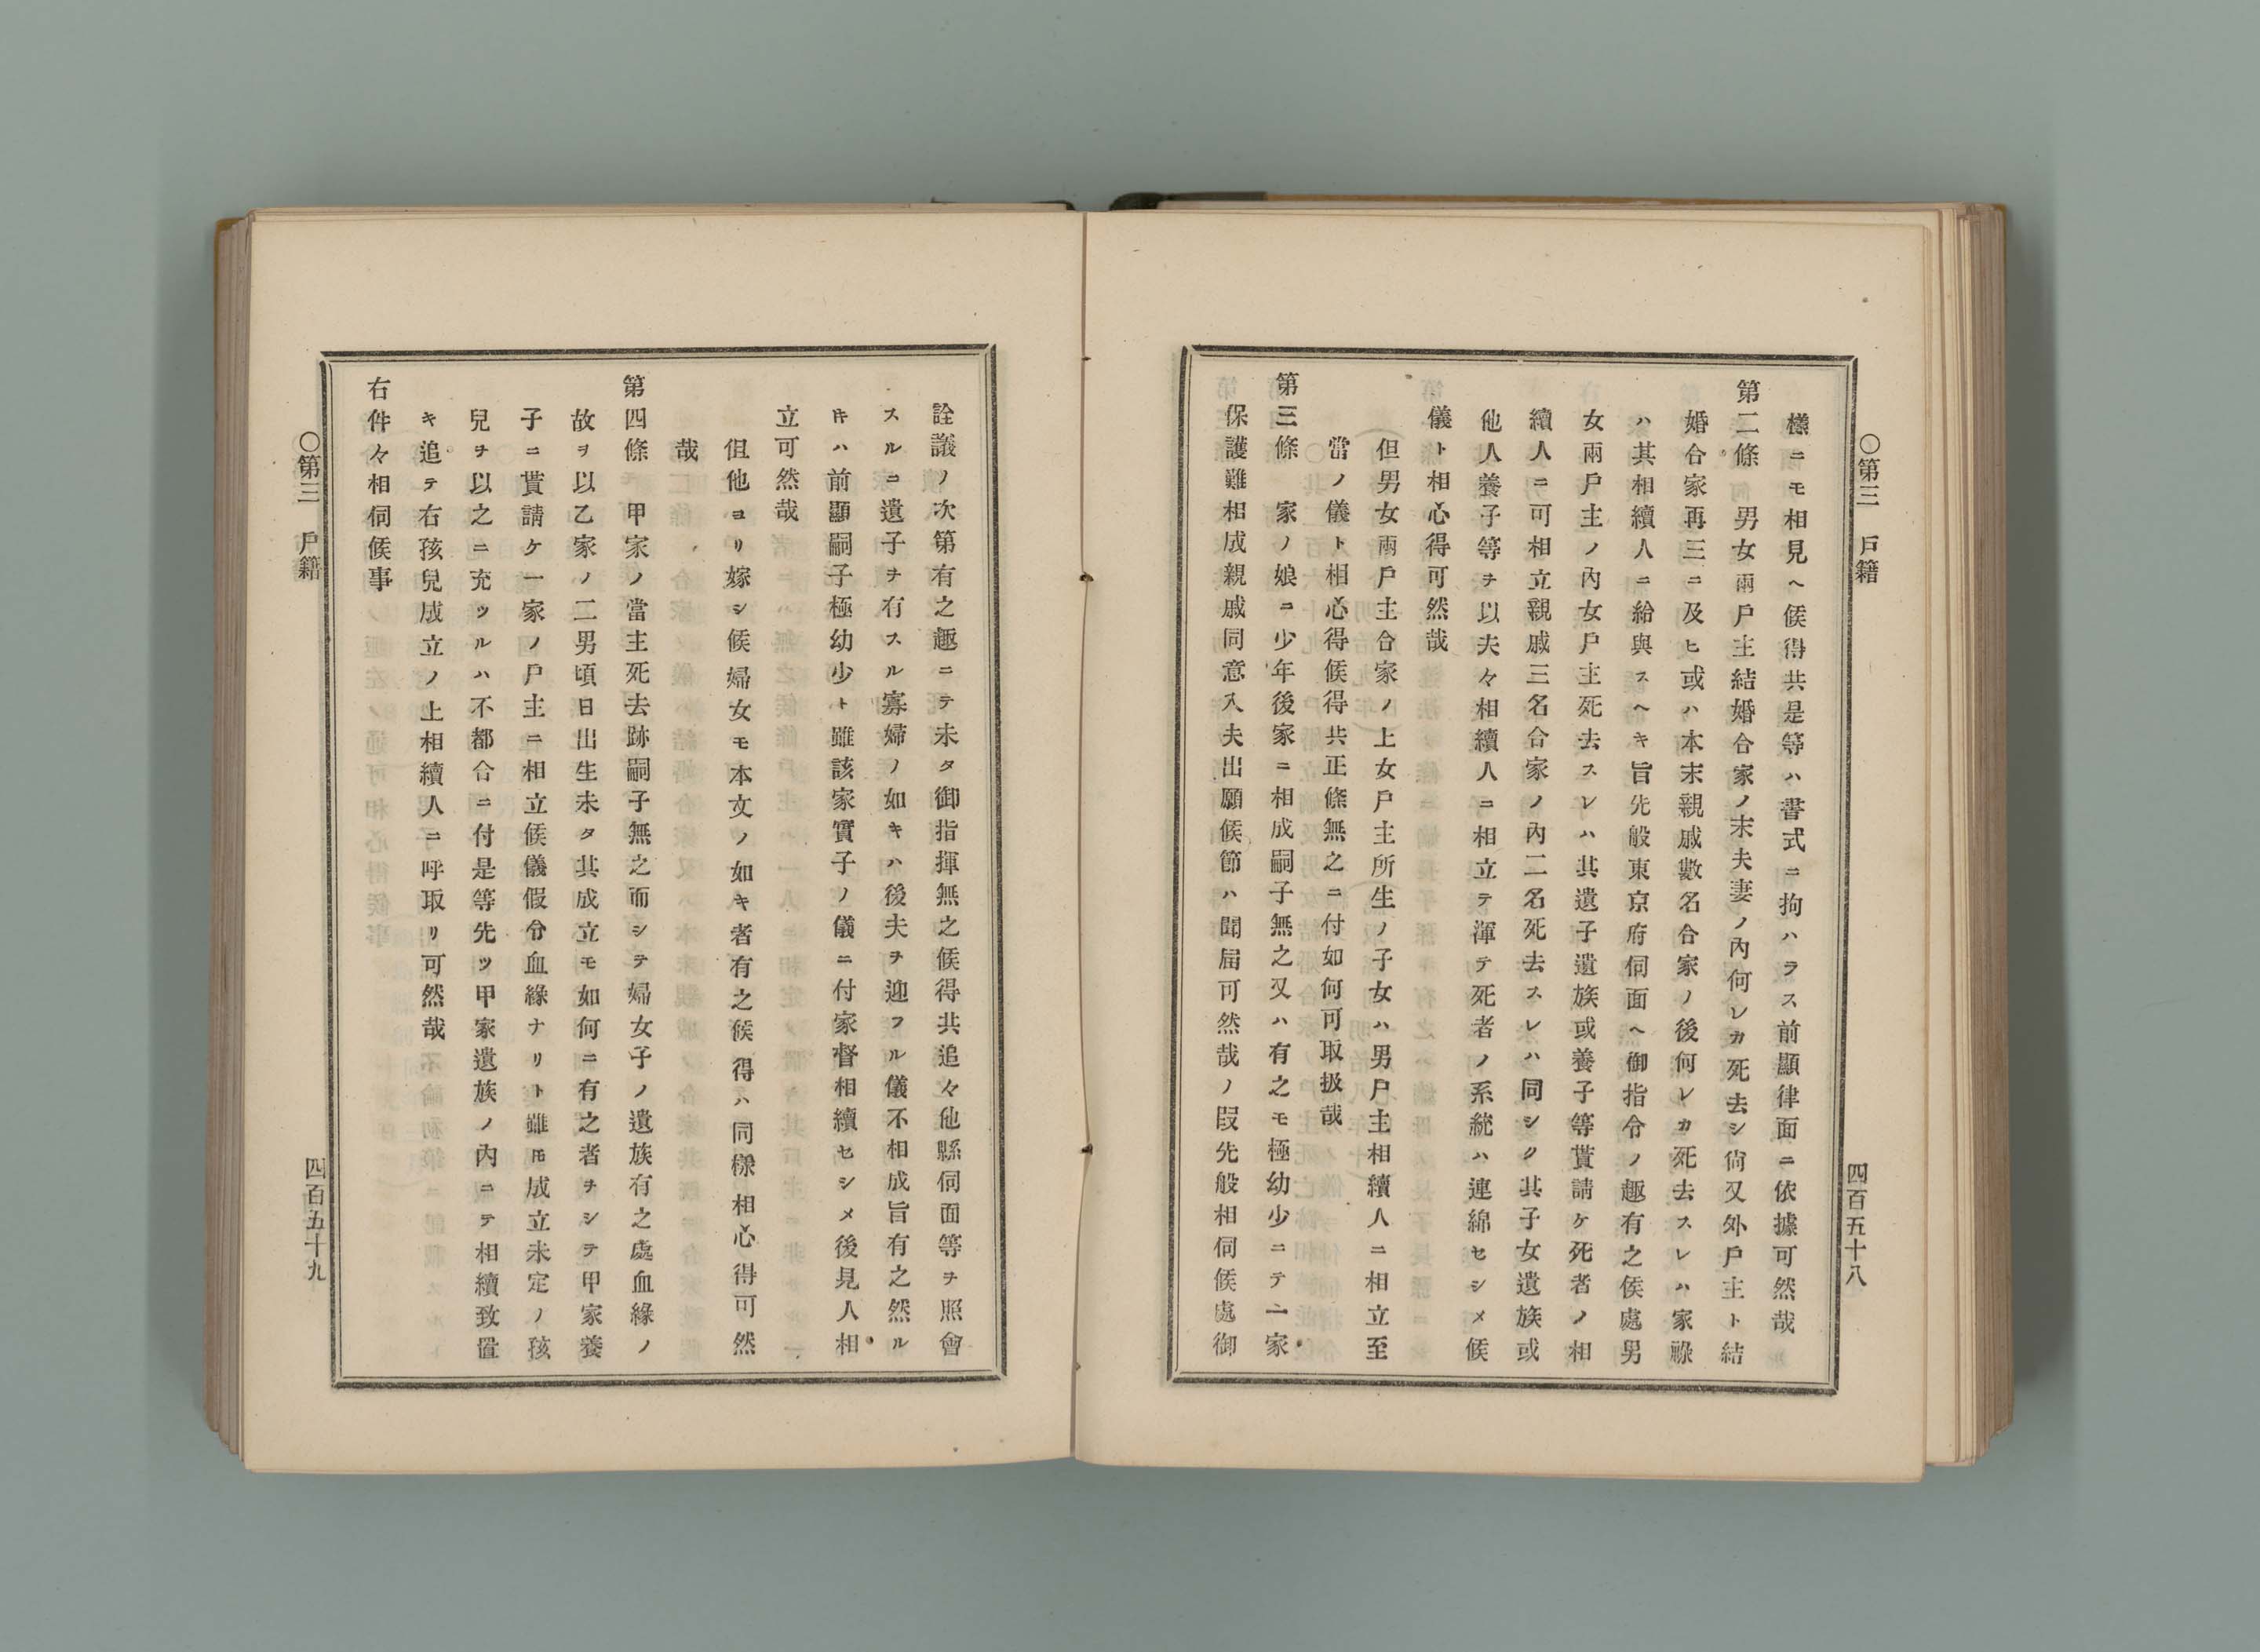 ○第三　戸籍
四百五十八
樣ニモ相見ヘ候得共是等ハ書式ニ拘ハラス前顯律面ニ依據可然哉
第二條　男女兩戸主結婚合家ノ末夫妻ノ內何レカ死去シ尙又外戸主ト結
婚合家再三ニ及ヒ或ハ本末親戚數名合家ノ後何レカ死去スレハ家祿
ハ其相續人ニ給與スヘキ旨先般東京府伺面ヘ御指令ノ趣有之候處男
女兩戸主ノ內女戸主死去スレハ其遺子遺族或養子等貰請ケ死者ノ相
續人ニ可相立親戚三名合家ノ內二名死去スレハ同シク其子女遺族或
他人養子等ヲ以夫々相續人ニ相立テ渾テ死者ノ系統ハ連綿セシメ候
儀ト相心得可然哉
但男女兩戸主合家ノ上女戸主所生ノ子女ハ男戸主相續人ニ相立至
當ノ儀ト相心得候得共正條無之ニ付如何可取扱哉
第三條　家ノ娘ニ少年後家ニ相成嗣子無之又ハ有之モ極幼少ニテ一家
保護難相成親戚同意入夫出願候節ハ聞屆可然哉ノ段先般相伺候處御
詮議ノ次第有之趣ニテ未タ御指揮無之候得共追々他縣伺面等ヲ照會
スルニ遺子ヲ有スル寡婦ノ如キハ後夫ヲ迎フル儀不相成旨有之然ル
トキハ前顯嗣子極幼少ト雖該家實子ノ儀ニ付家督相續セシメ後見人相
立可然哉
但他ヨリ嫁シ候婦女モ本文ノ如キ者有之候得ハ同樣相心得可然
哉
第四條　甲家ノ當主死去跡嗣子無之而シテ婦女子ノ遺族有之處血緣ノ
故ヲ以乙家ノ二男頃日出生未タ其成立モ如何ニ有之者ヲシテ甲家養
子ニ貰請ケ一家ノ戸主ニ相立候儀假令血緣ナリト雖𪜈成立未定ノ孩
兒ヲ以之ニ充ツルハ不都合ニ付是等先ツ甲家遺族ノ內ニテ相續致置
キ追テ右孩兒成立ノ上相續人ニ呼取リ可然哉
右件々相伺候事
○第三　戸籍
四百五十九